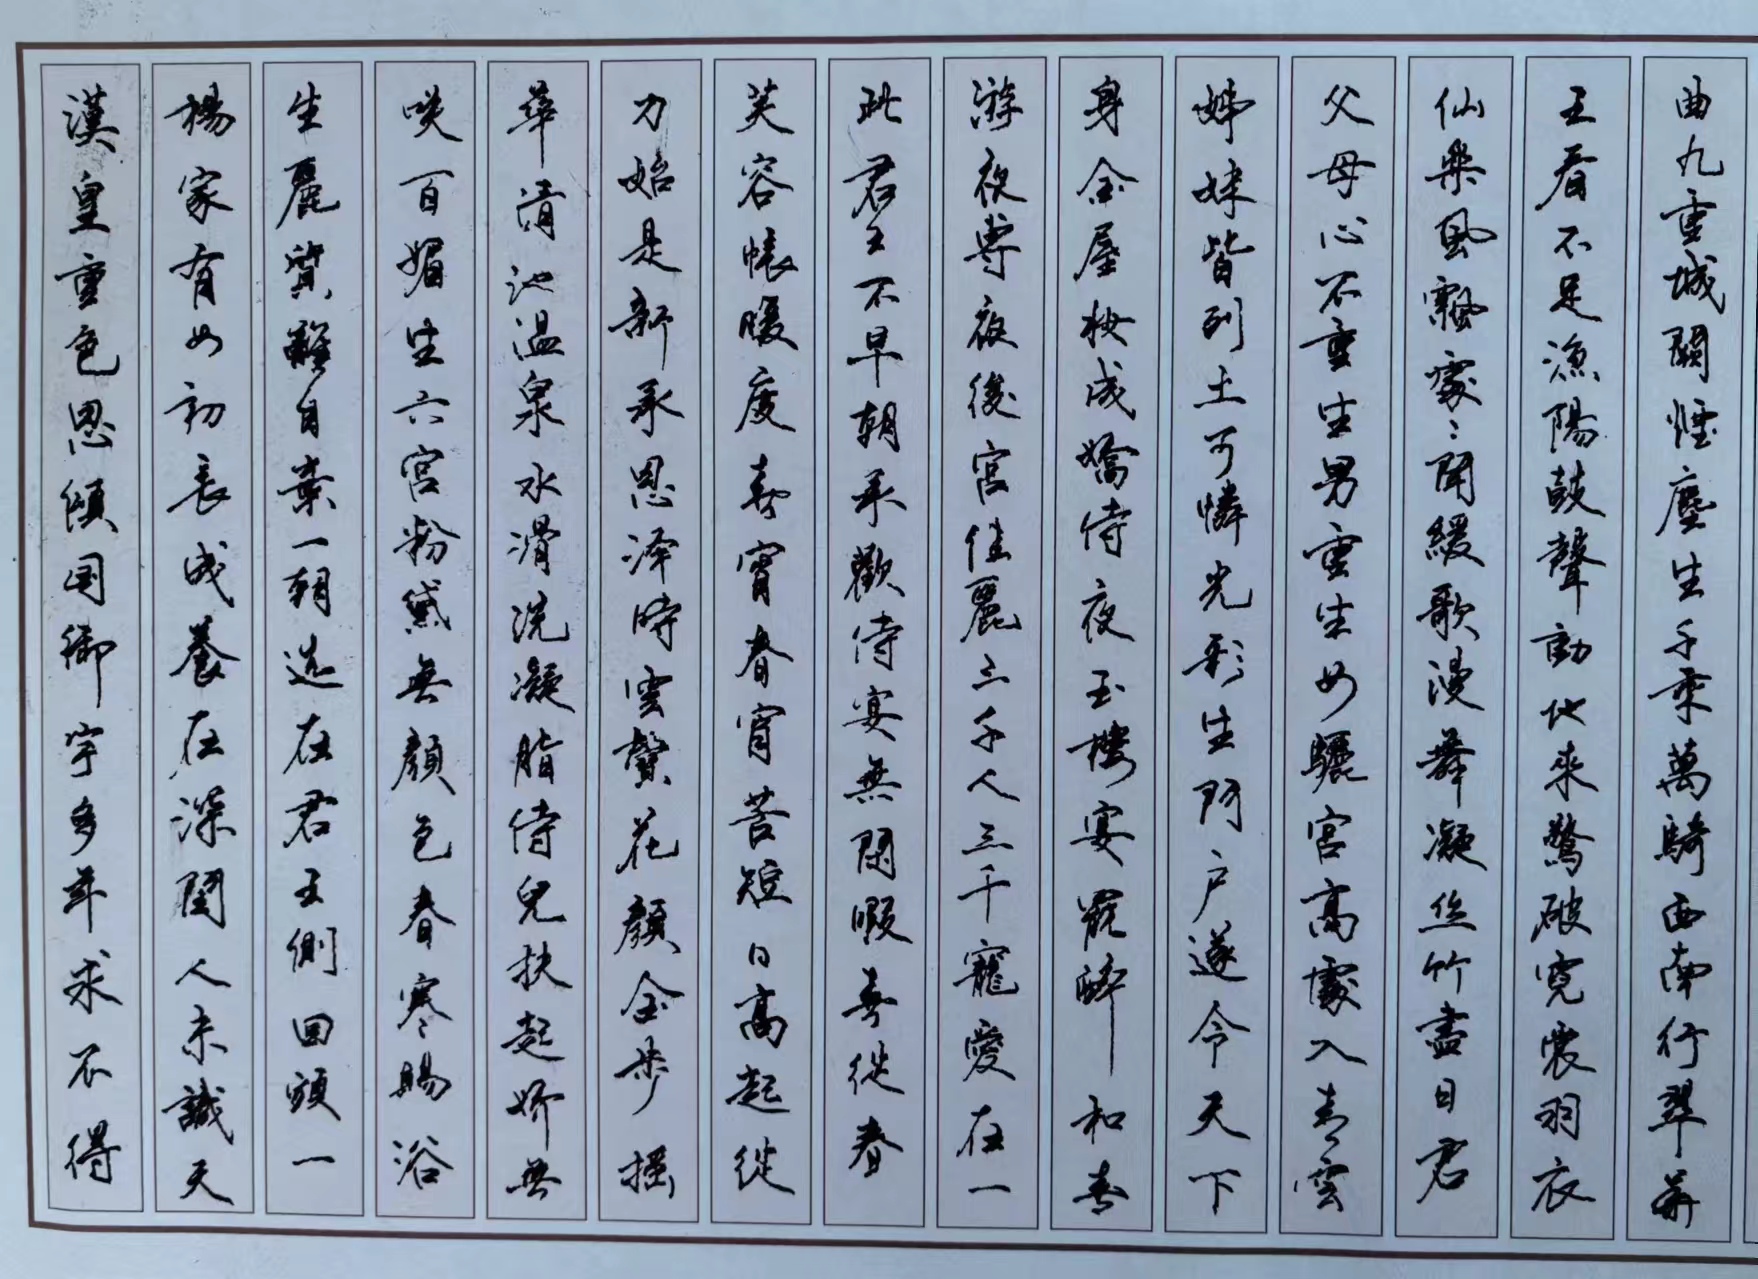 漢皇重色思傾国御宇多年求不得
楊家有女初長成養在深閨人未識天
生麗質難自棄一朝选在君王側回頭一
咲百媚生六宮粉黛無顏色春寒賜浴
華清池温泉水滑洗凝脂侍兒扶起娇無
力始是新承恩泽時雲鬢花顏金步摇
芙容帳暖度春宵春宵苦短日高起從
此君王不早朝承歡侍宴無閒暇春從春
游夜專夜後宮佳麗三千人三千寵愛在一
身金屋妆成嬌侍夜玉樓宴罷醉和春
姊妹皆列土可憐光彩生門户遂令天下
父母心不重生男重生女驪宮高處入青雲
仙樂風飄處〻聞緩歌漫舞凝丝竹盡日君
王看不足漁陽鼓聲動地來驚破霓裳羽衣
曲九重城闕煙塵生千乘萬騎西南行翠華